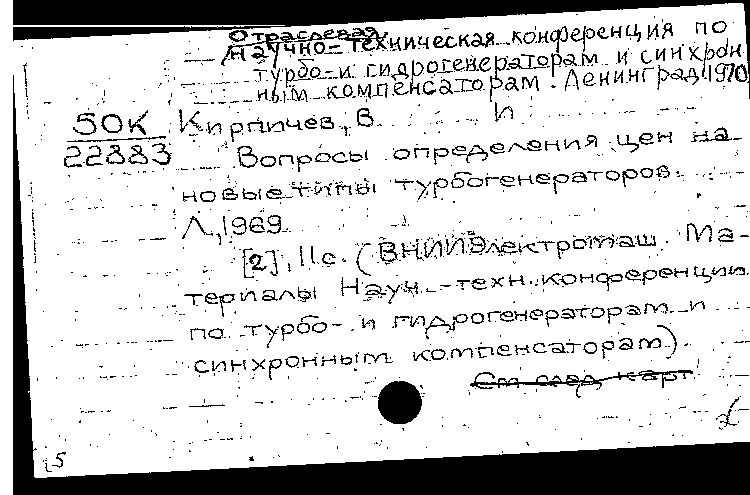 Отраслевая
научно-техническая конференция по
турбо- и гидрогенераторам и синхрон
ным компенсаторам. Ленинград, 1970
50К Кирпичев, В. И
22883 Вопросы определения цен на
новые типы турбогенераторов.
Л, 1969
[2], 11с. (ВНИИЭлектромаш. Ма-
териалы Науч.-техн. конференции
по турбо- и гидрогенераторам и
синхронным компенсаторам).
См след карт